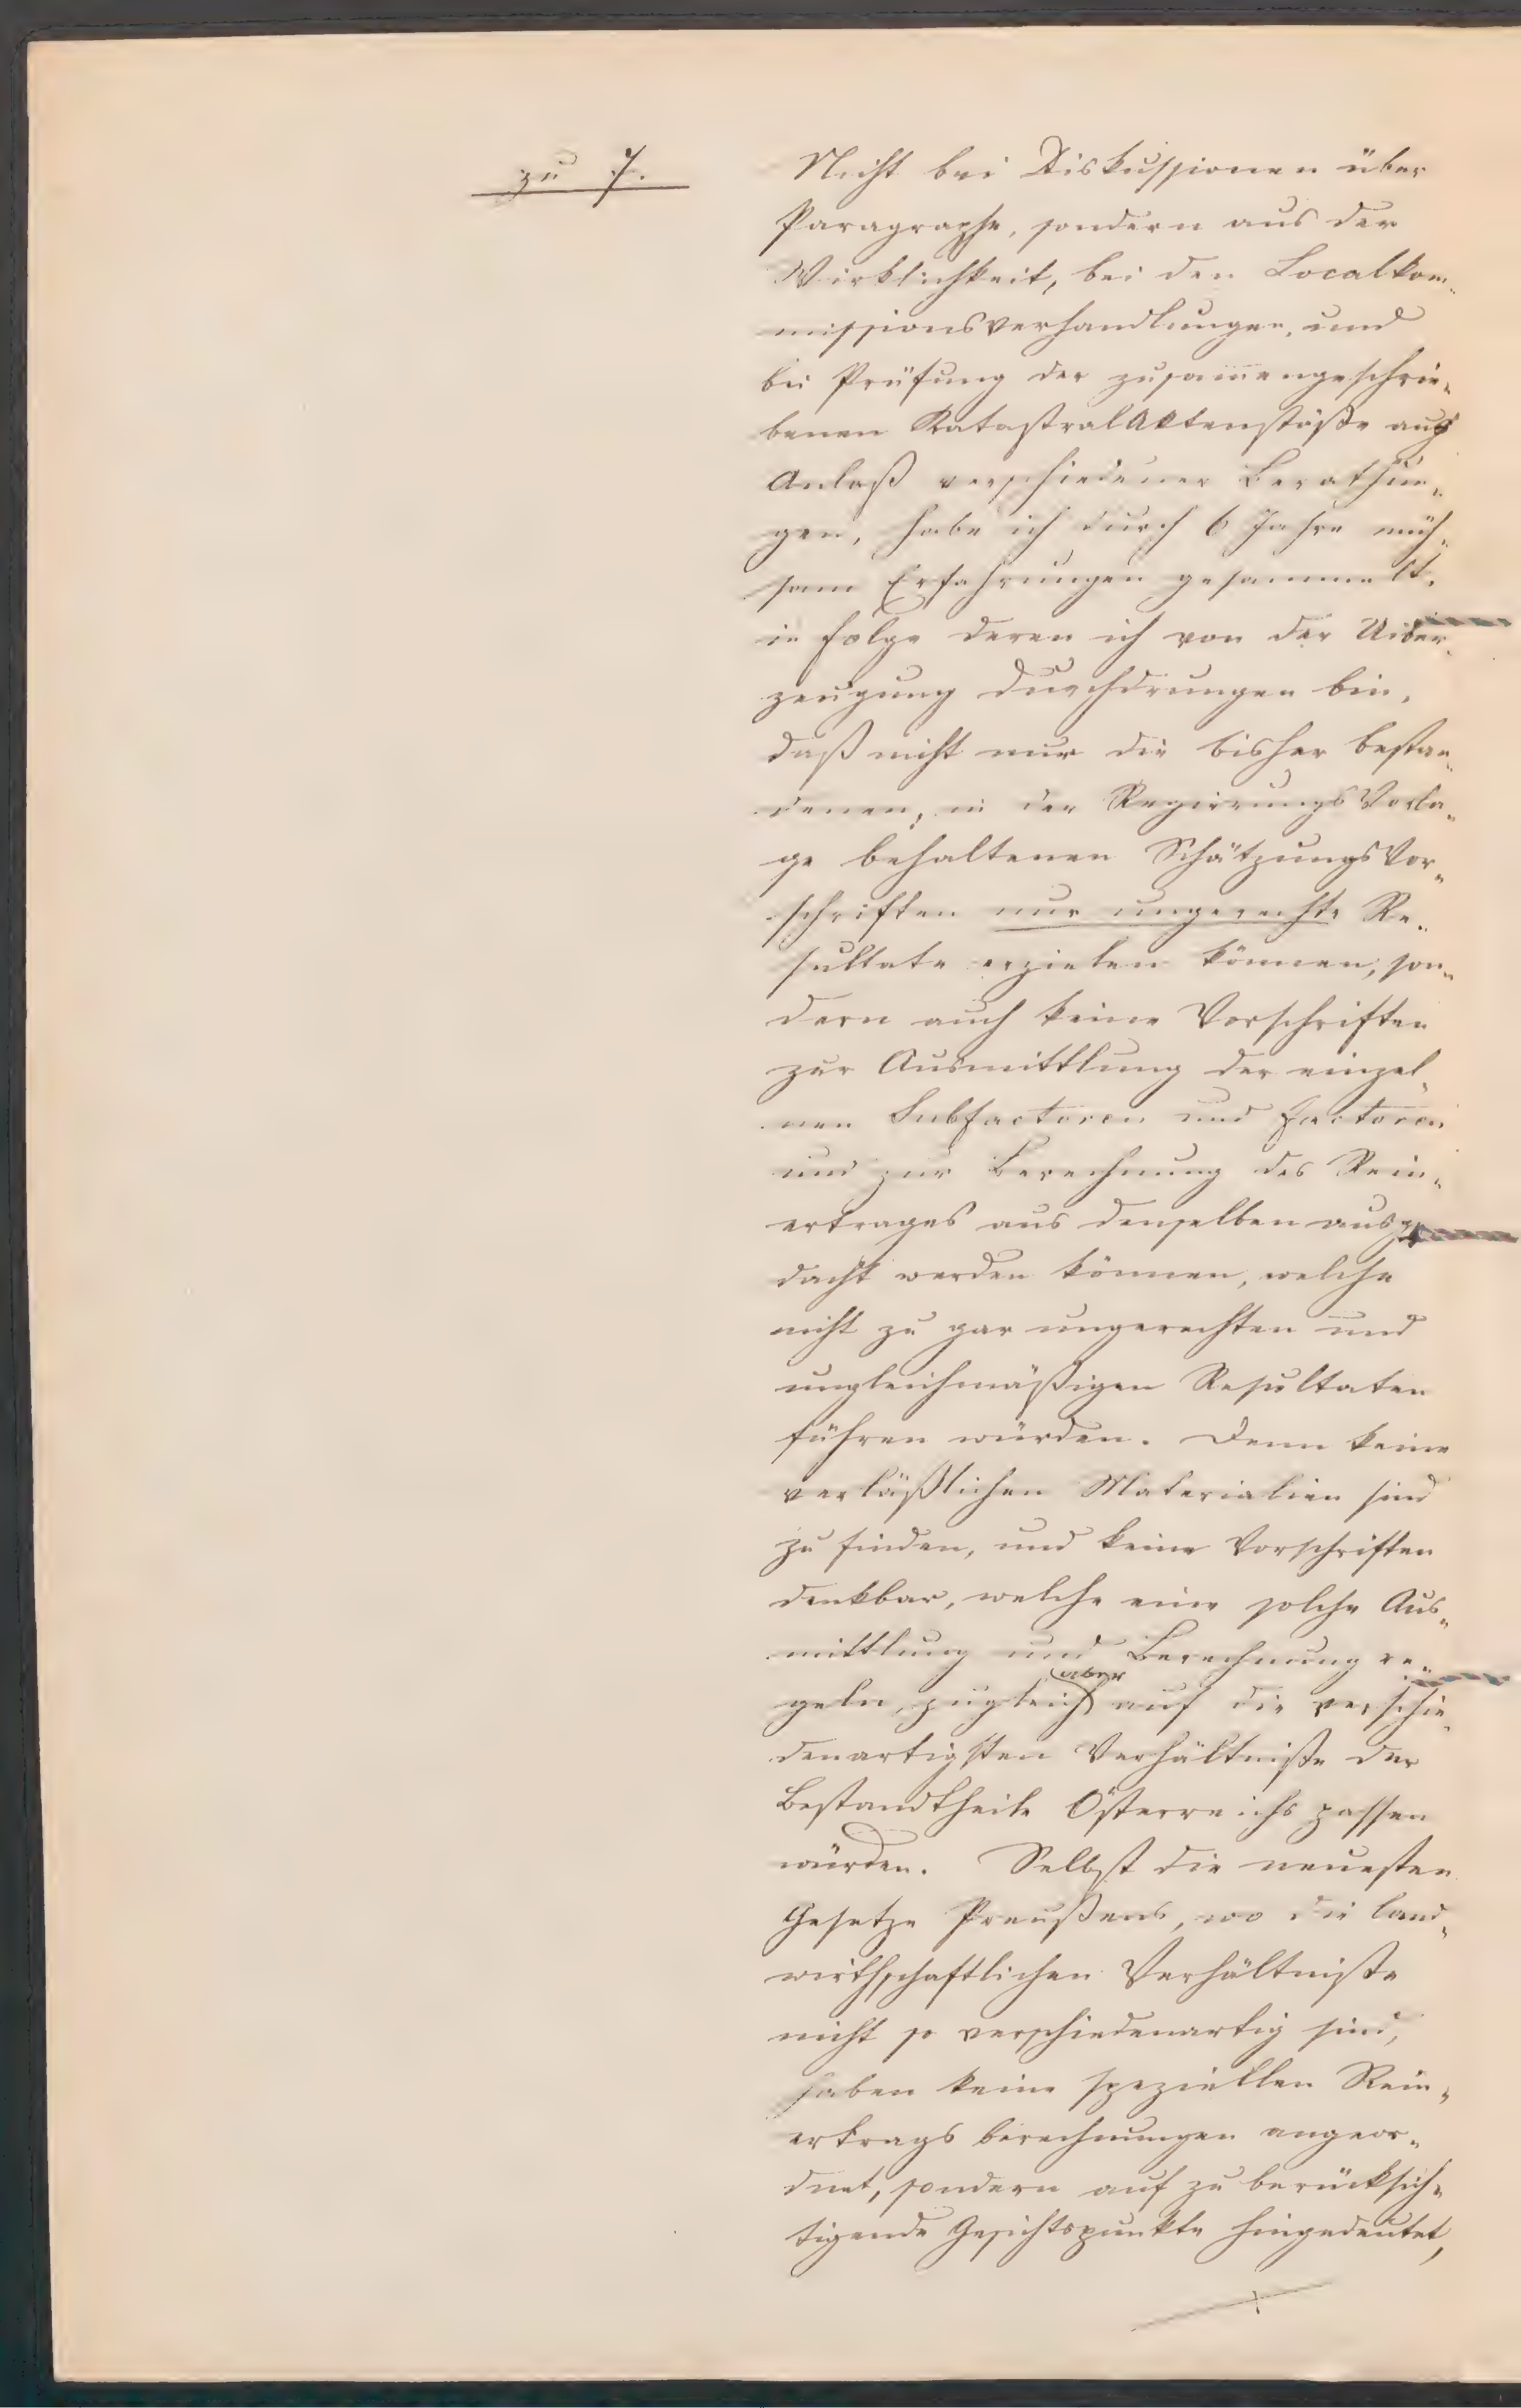 zu 7.
Nicht bei Diskussionen über
Paragraphe, sondern aus der
Wirklichkeit, bei den Localkom„
missionsverhandlungen, und
bei Prüfung der zusammengeschrie„
benen KatastralActenstöße aus
Anlaß verschiedener Berathun„
gen, habe ich durch 6 Jahre müh„
sam Erfahrungen gesammelt,
in Folge deren ich von der Uiber„
zeugung durchdrungen bin,
daß nicht nur die bisher bestan„
denen, in der RegierungsVorla„
ge behaltenen SchätzungsVor„
schriften nur ungerechte Re„
sultate erzielen können, son„
dern auch keine Vorschriften
zur Ausmittlung der einzel„
nen Subfactoren und Factoren
und zur Berechnung des Rein„
ertrages aus denselben ausge„
dacht werden können, welche
nicht zu gar ungerechten und
ungleichmäßigen Resultaten
führen würden. Denn keine
verläßlichen Materialien sind
zu finden, und keine Vorschriften
denkbar, welche eine solche Aus„
mittlung und Berechnung re„
geln, zugleich aber auf die verschie„
denartigsten Verhältniße der
Bestandtheile Österreichs passen
würden. Selbst die neuesten
Gesetze Preußens, wo die land„
wirthschaftlichen Verhältniße
nicht so verschiedenartig sind,
haben keine speziellen Rein„
ertrags berechnungen angeor„
dnet, sondern auf zu berücksich„
tigende Gesichtspunkte hingedeutet,